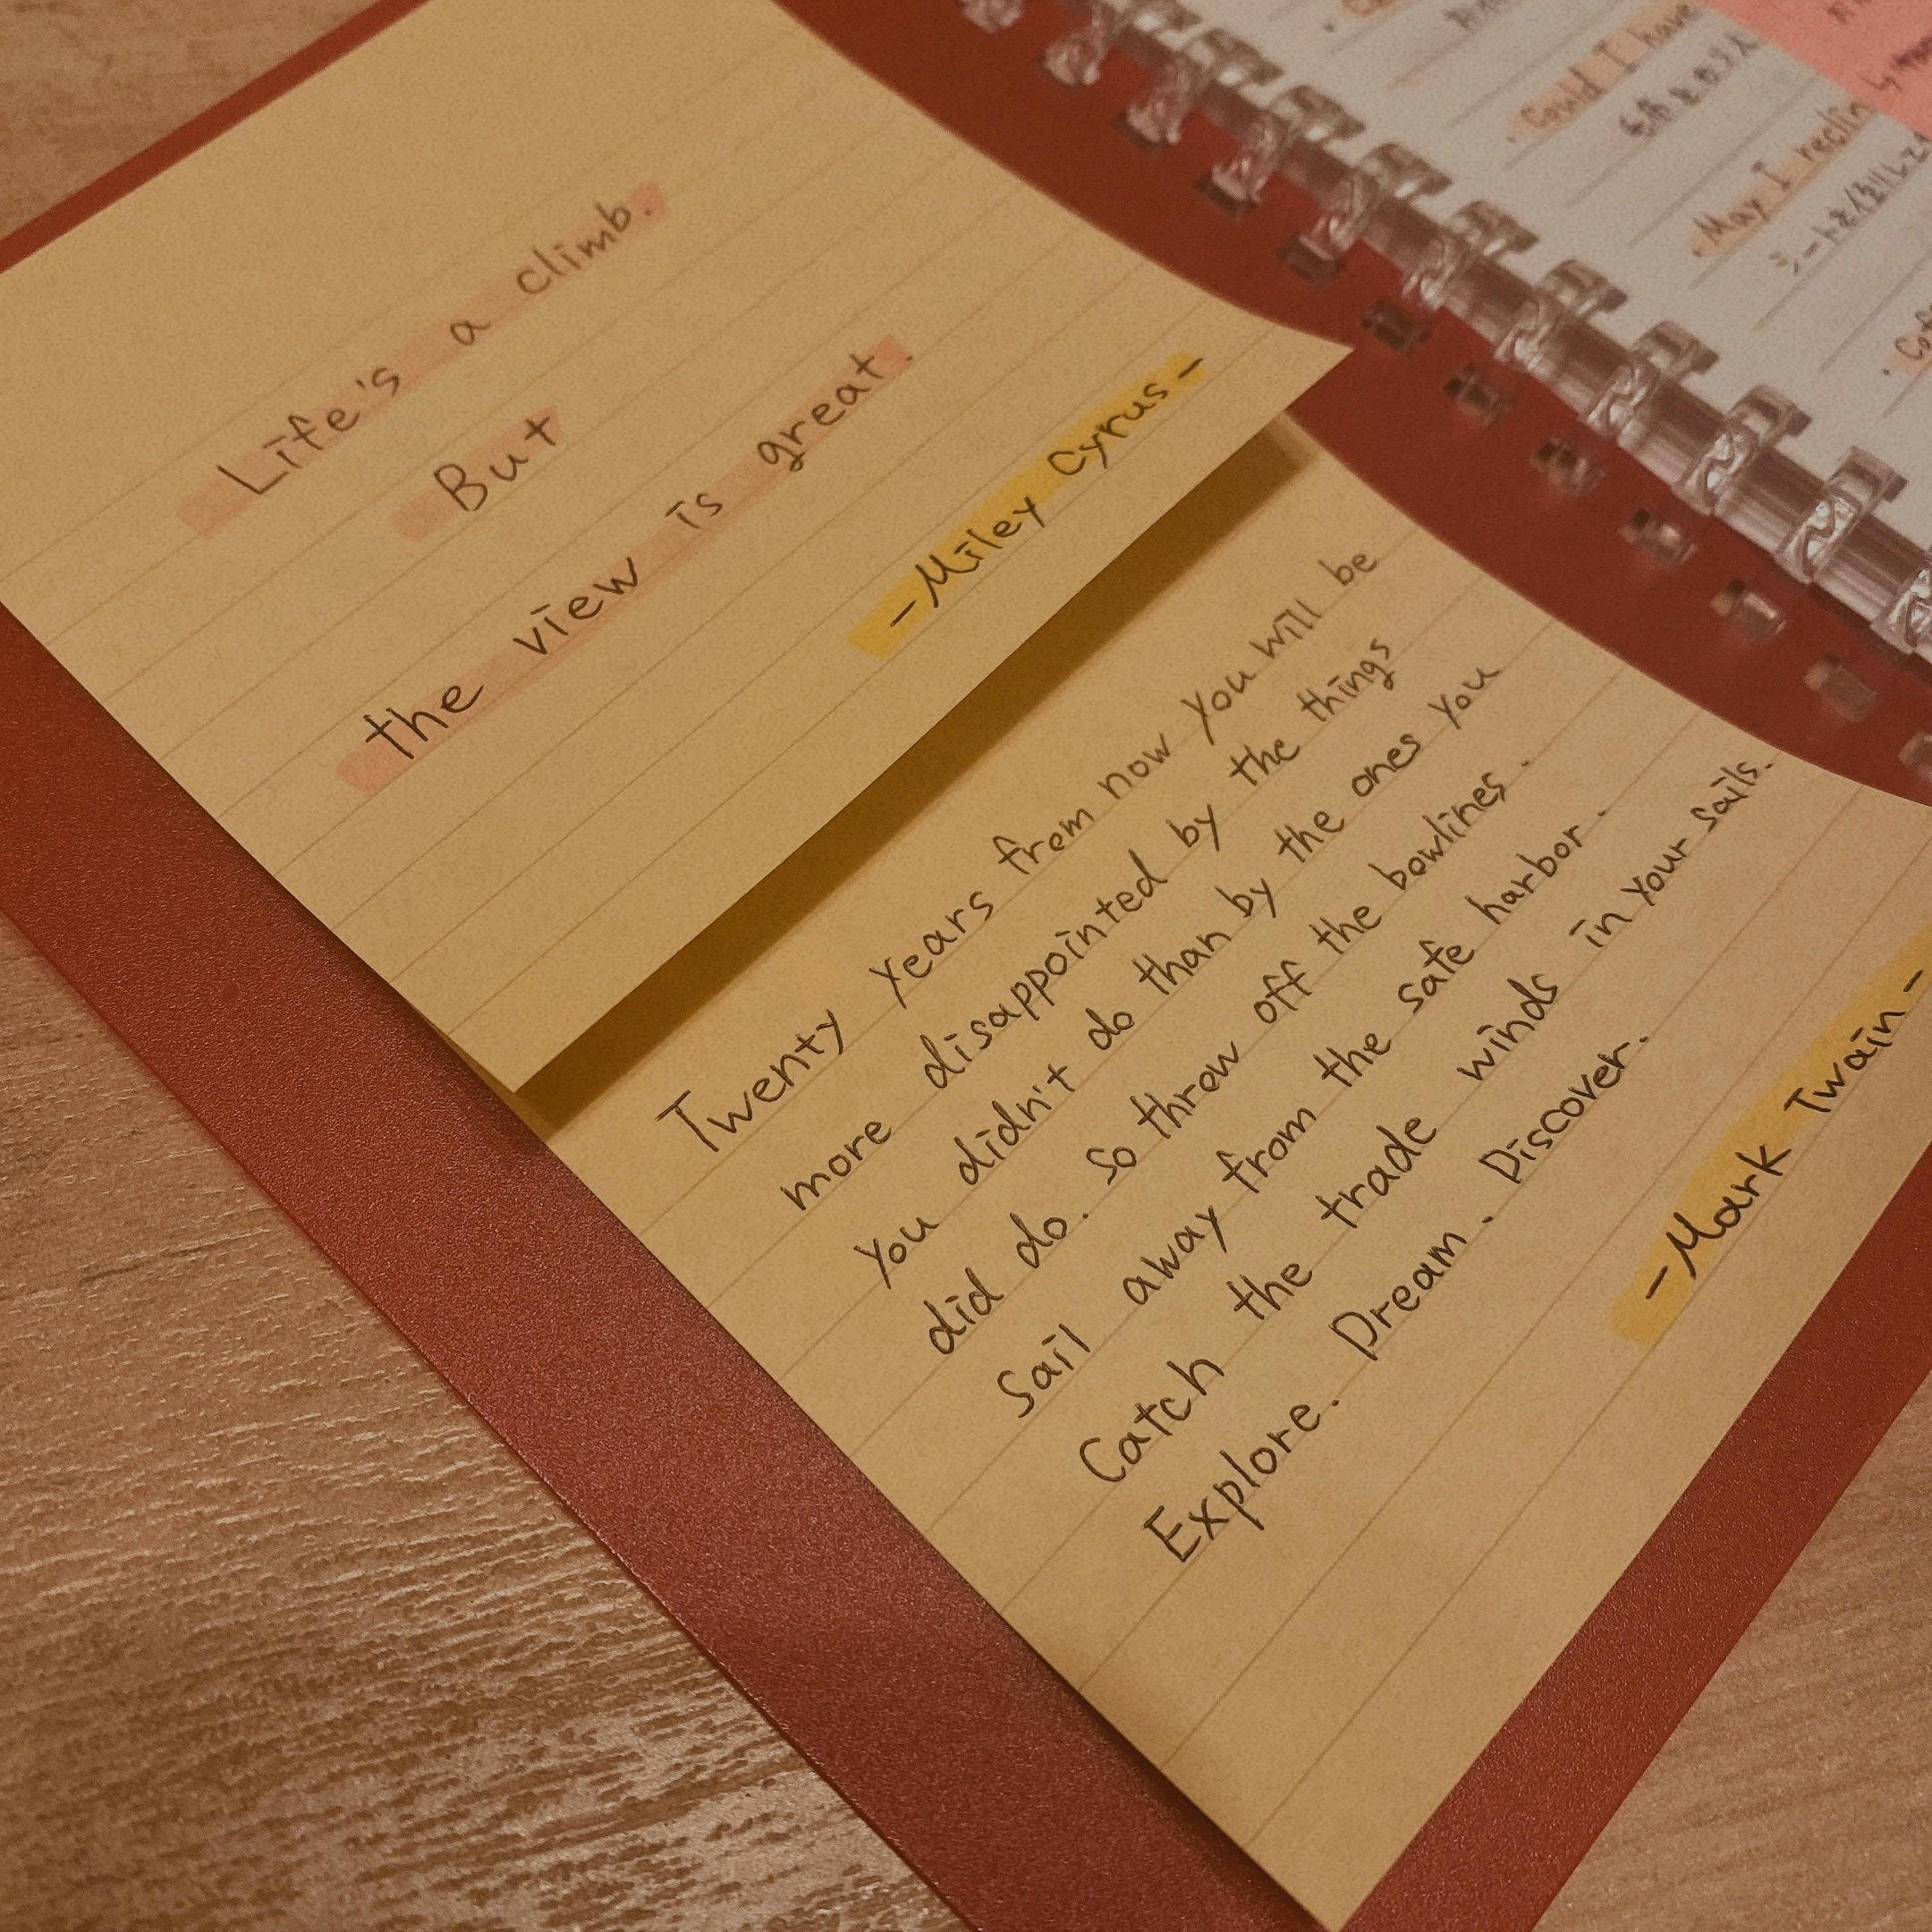 Life's a climb.
But
the view is great.
-Miley Cyrus-
Twenty years from now you will be
more disappointed by the things
you didn't do than by the ones you
did do. So threw off the bowlines.
Sail away from the safe harbor.
Catch the trade winds in your sails.
Explore. Dream. Discover.
-Mark Twain-
Could I have
May I reclin